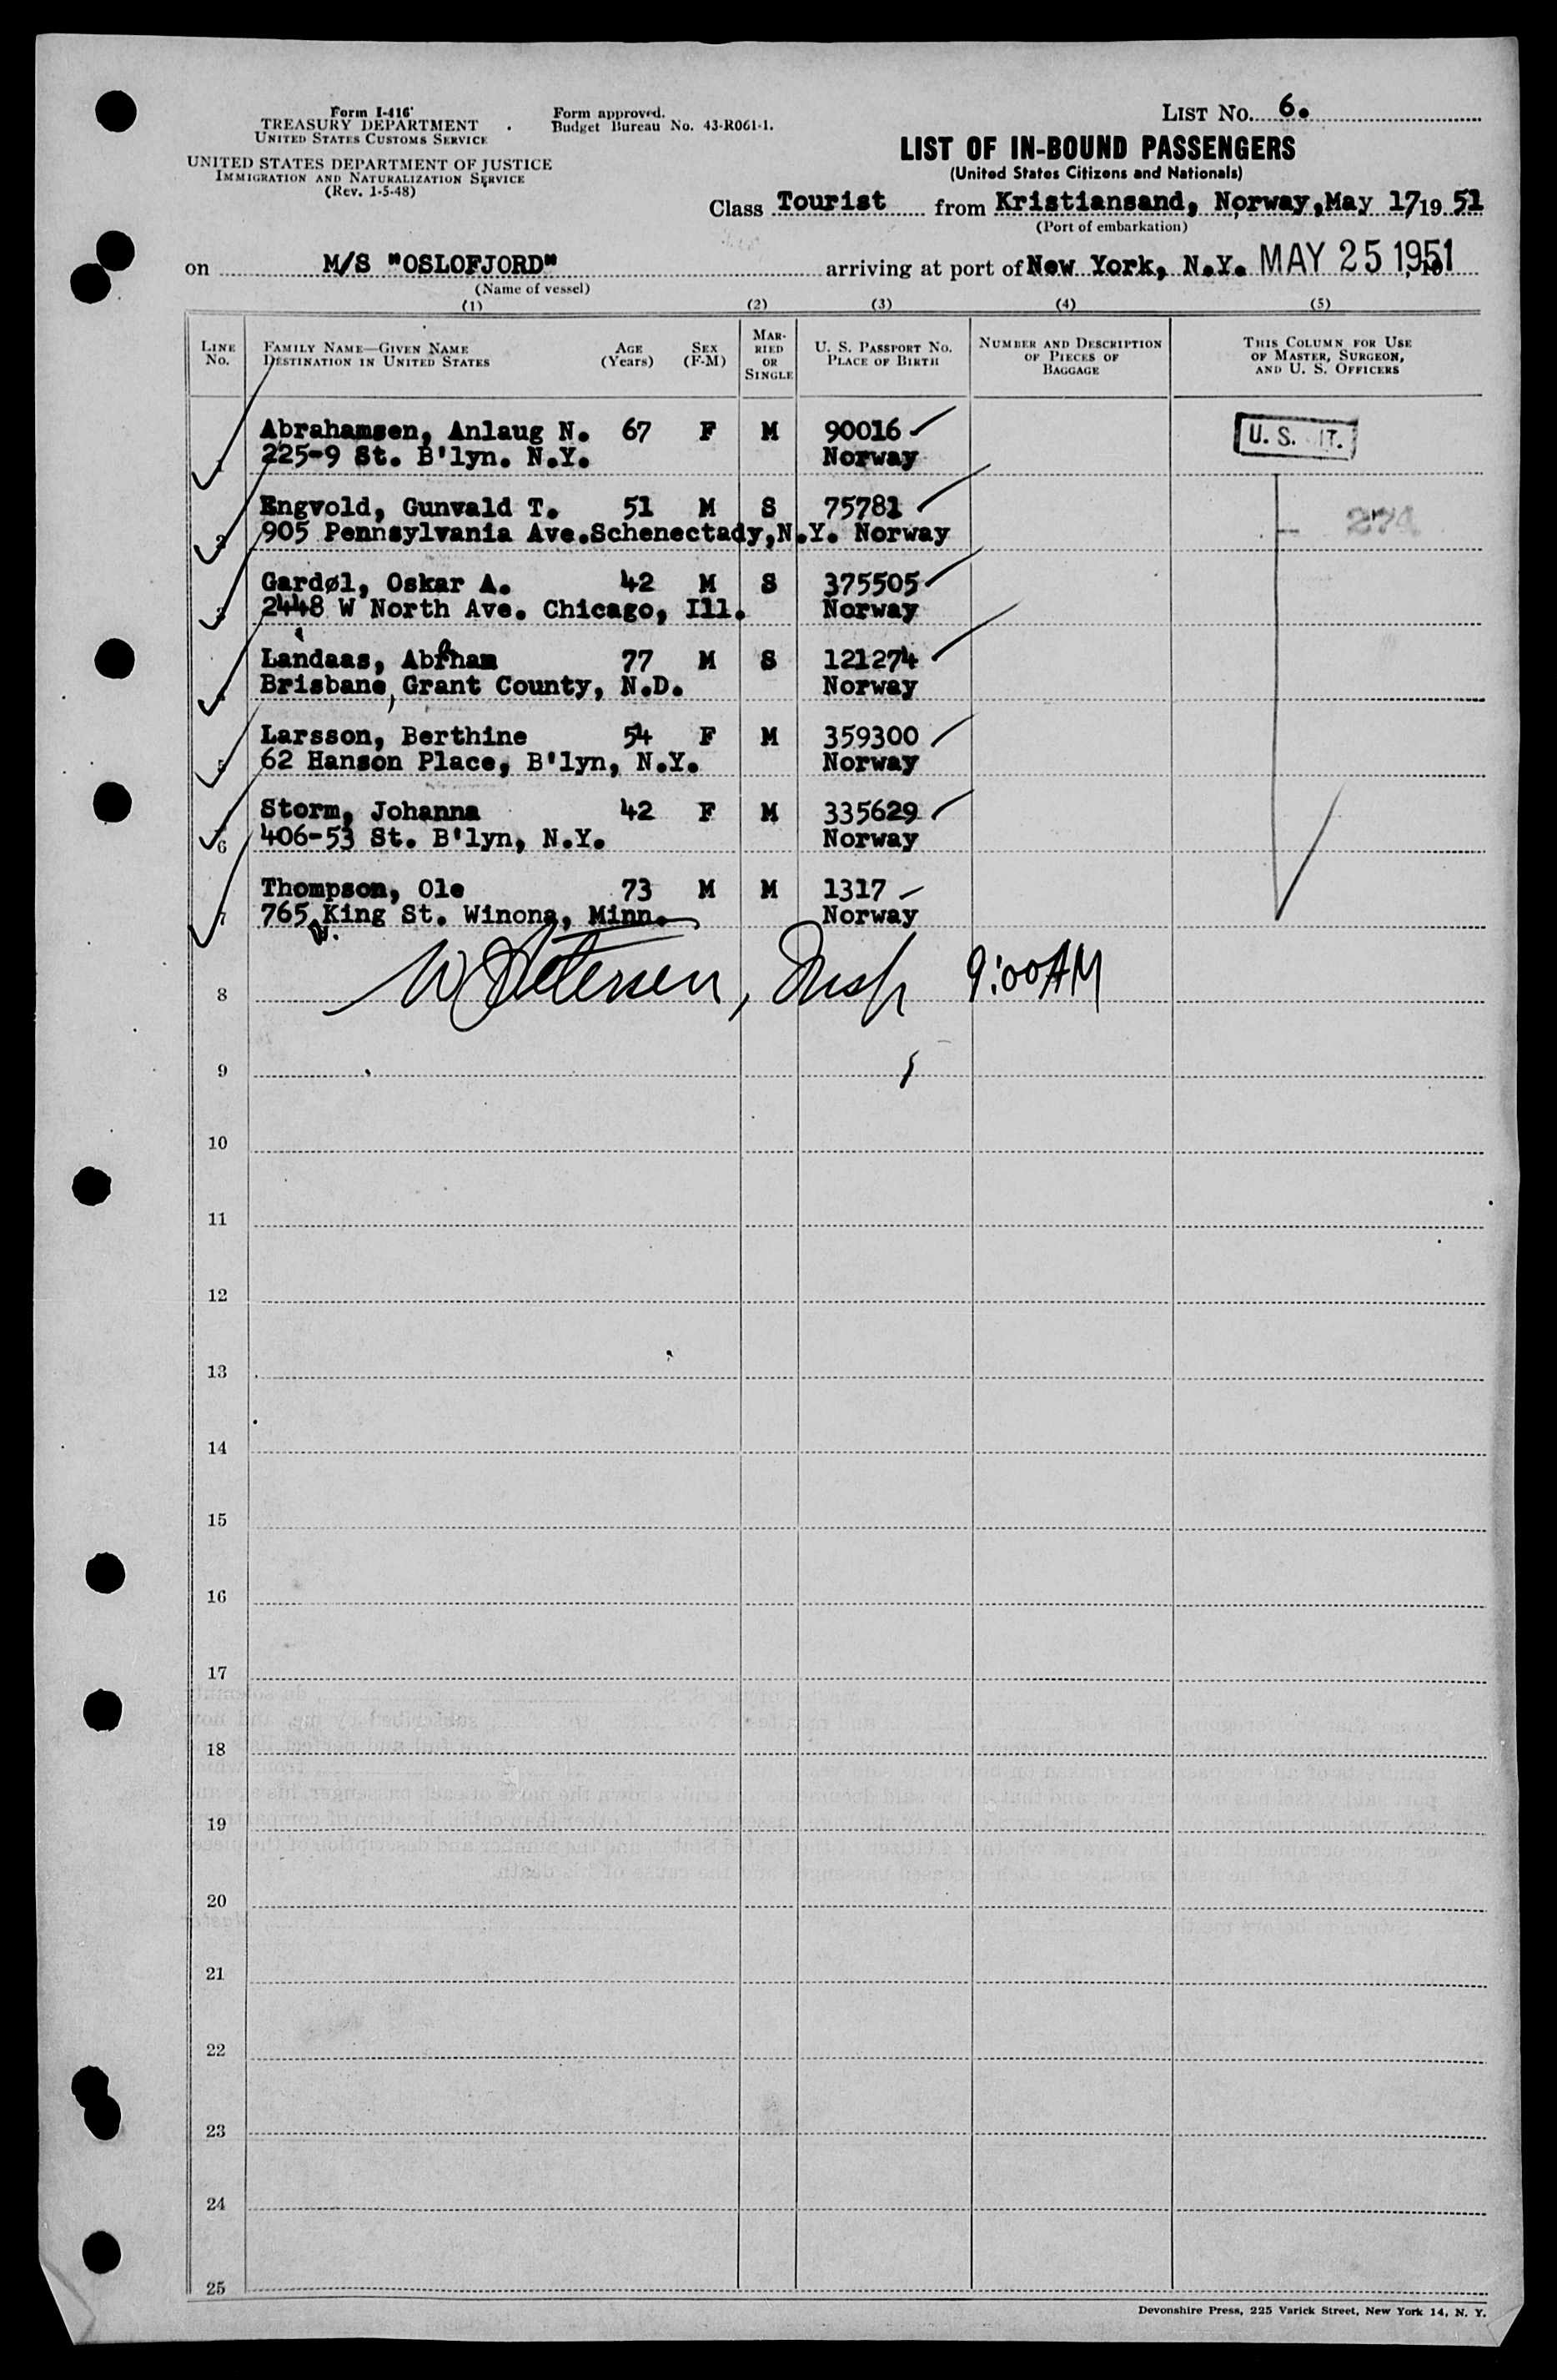 Form I-416
TREASURY DEPARTMENT
UNITED STATES CUSTOMS SERVICE
UNITED STATES DEPARTMENT OF JUSTICE
IMMIGRATION AND NATURALIZATION SERVICE
(Rev. 1-5-48)
Form approved.
Budget Bureau No. 43-R061-1.
LIST No. 6.
LIST OF IN-BOUND PASSENGERS
(United States Citizens and Nationals)
Class Tourist from Kristiansand, Norway, May 17 19 51
(Port of embarkation)
on M/S "OSLOFJORD" arriving at port of New York, N.Y. MAY 25 1951
(Name of vessel)
(1) (2) (3) (4) (5)
LINE No. FAMILY NAME—GIVEN NAME DESTINATION IN UNITED STATES AGE (Years) SEX (F-M) MARRIED OR SINGLE U. S. PASSPORT No. PLACE OF BIRTH NUMBER AND DESCRIPTION OF PIECES OF BAGGAGE THIS COLUMN FOR USE OF MASTER, SURGEON, AND U. S. OFFICERS
Abrahamsen, Anlaug N. 67 F M 90016 U. S. IT.
225-9 St. B'lyn. N.Y. Norway
Engvold, Gunvald T. 51 M S 75781 274
2 905 Pennsylvania Ave.Schenectady,N.Y. Norway
Gardøl, Oskar A. 42 M S 375505
3 2448 W North Ave. Chicago, Ill. Norway
Landaas, Abrham 77 M S 121274
4 Brisbane, Grant County, N.D. Norway
Larsson, Berthine 54 F M 359300
5 62 Hanson Place, B'lyn, N.Y. Norway
Storm, Johanna 42 F M 335629
6 406-53 St. B'lyn, N.Y. Norway
Thompson, Ole 73 M M 1317
7 765 W. King St. Winona, Minn. Norway
8 W Petersen, Insp 9:00 AM
9
10
11
12
13
14
15
16
17
18
19
20
21
22
23
24
25
Devonshire Press, 225 Varick Street, New York 14, N. Y.